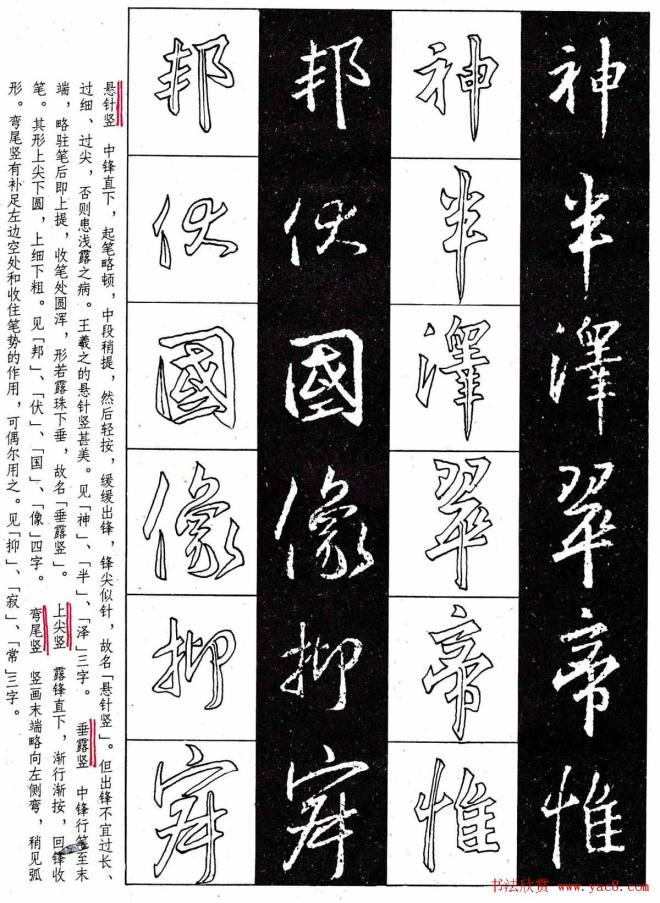 神半澤翠帝惟
神半澤翠帝惟
邦伏國像抑寂
邦伏國像抑寂
悬针竖 中锋直下，起笔略顿，中段稍提，然后轻按，缓缓出锋，锋尖似针，故名「悬针竖」。但出锋不宜过长、
过细、过尖，否则患浅露之病。王羲之的悬针竖甚美。见「神」、「半」、「泽」三字。 垂露竖 中锋行笔至末
端，略驻笔后即上提，收笔处圆浑，形若露珠下垂，故名「垂露竖」。 上尖竖 露锋直下，渐行渐按，回锋收
笔。其形上尖下圆，上细下粗。见「邦」、「伏」、「国」、「像」四字。 弯尾竖 竖画末端略向左侧弯，稍见弧
形。弯尾竖有补足左边空处和收住笔势的作用，可偶尔用之。见「抑」、「寂」、「常」三字。
书法欣赏 www.yac8.com